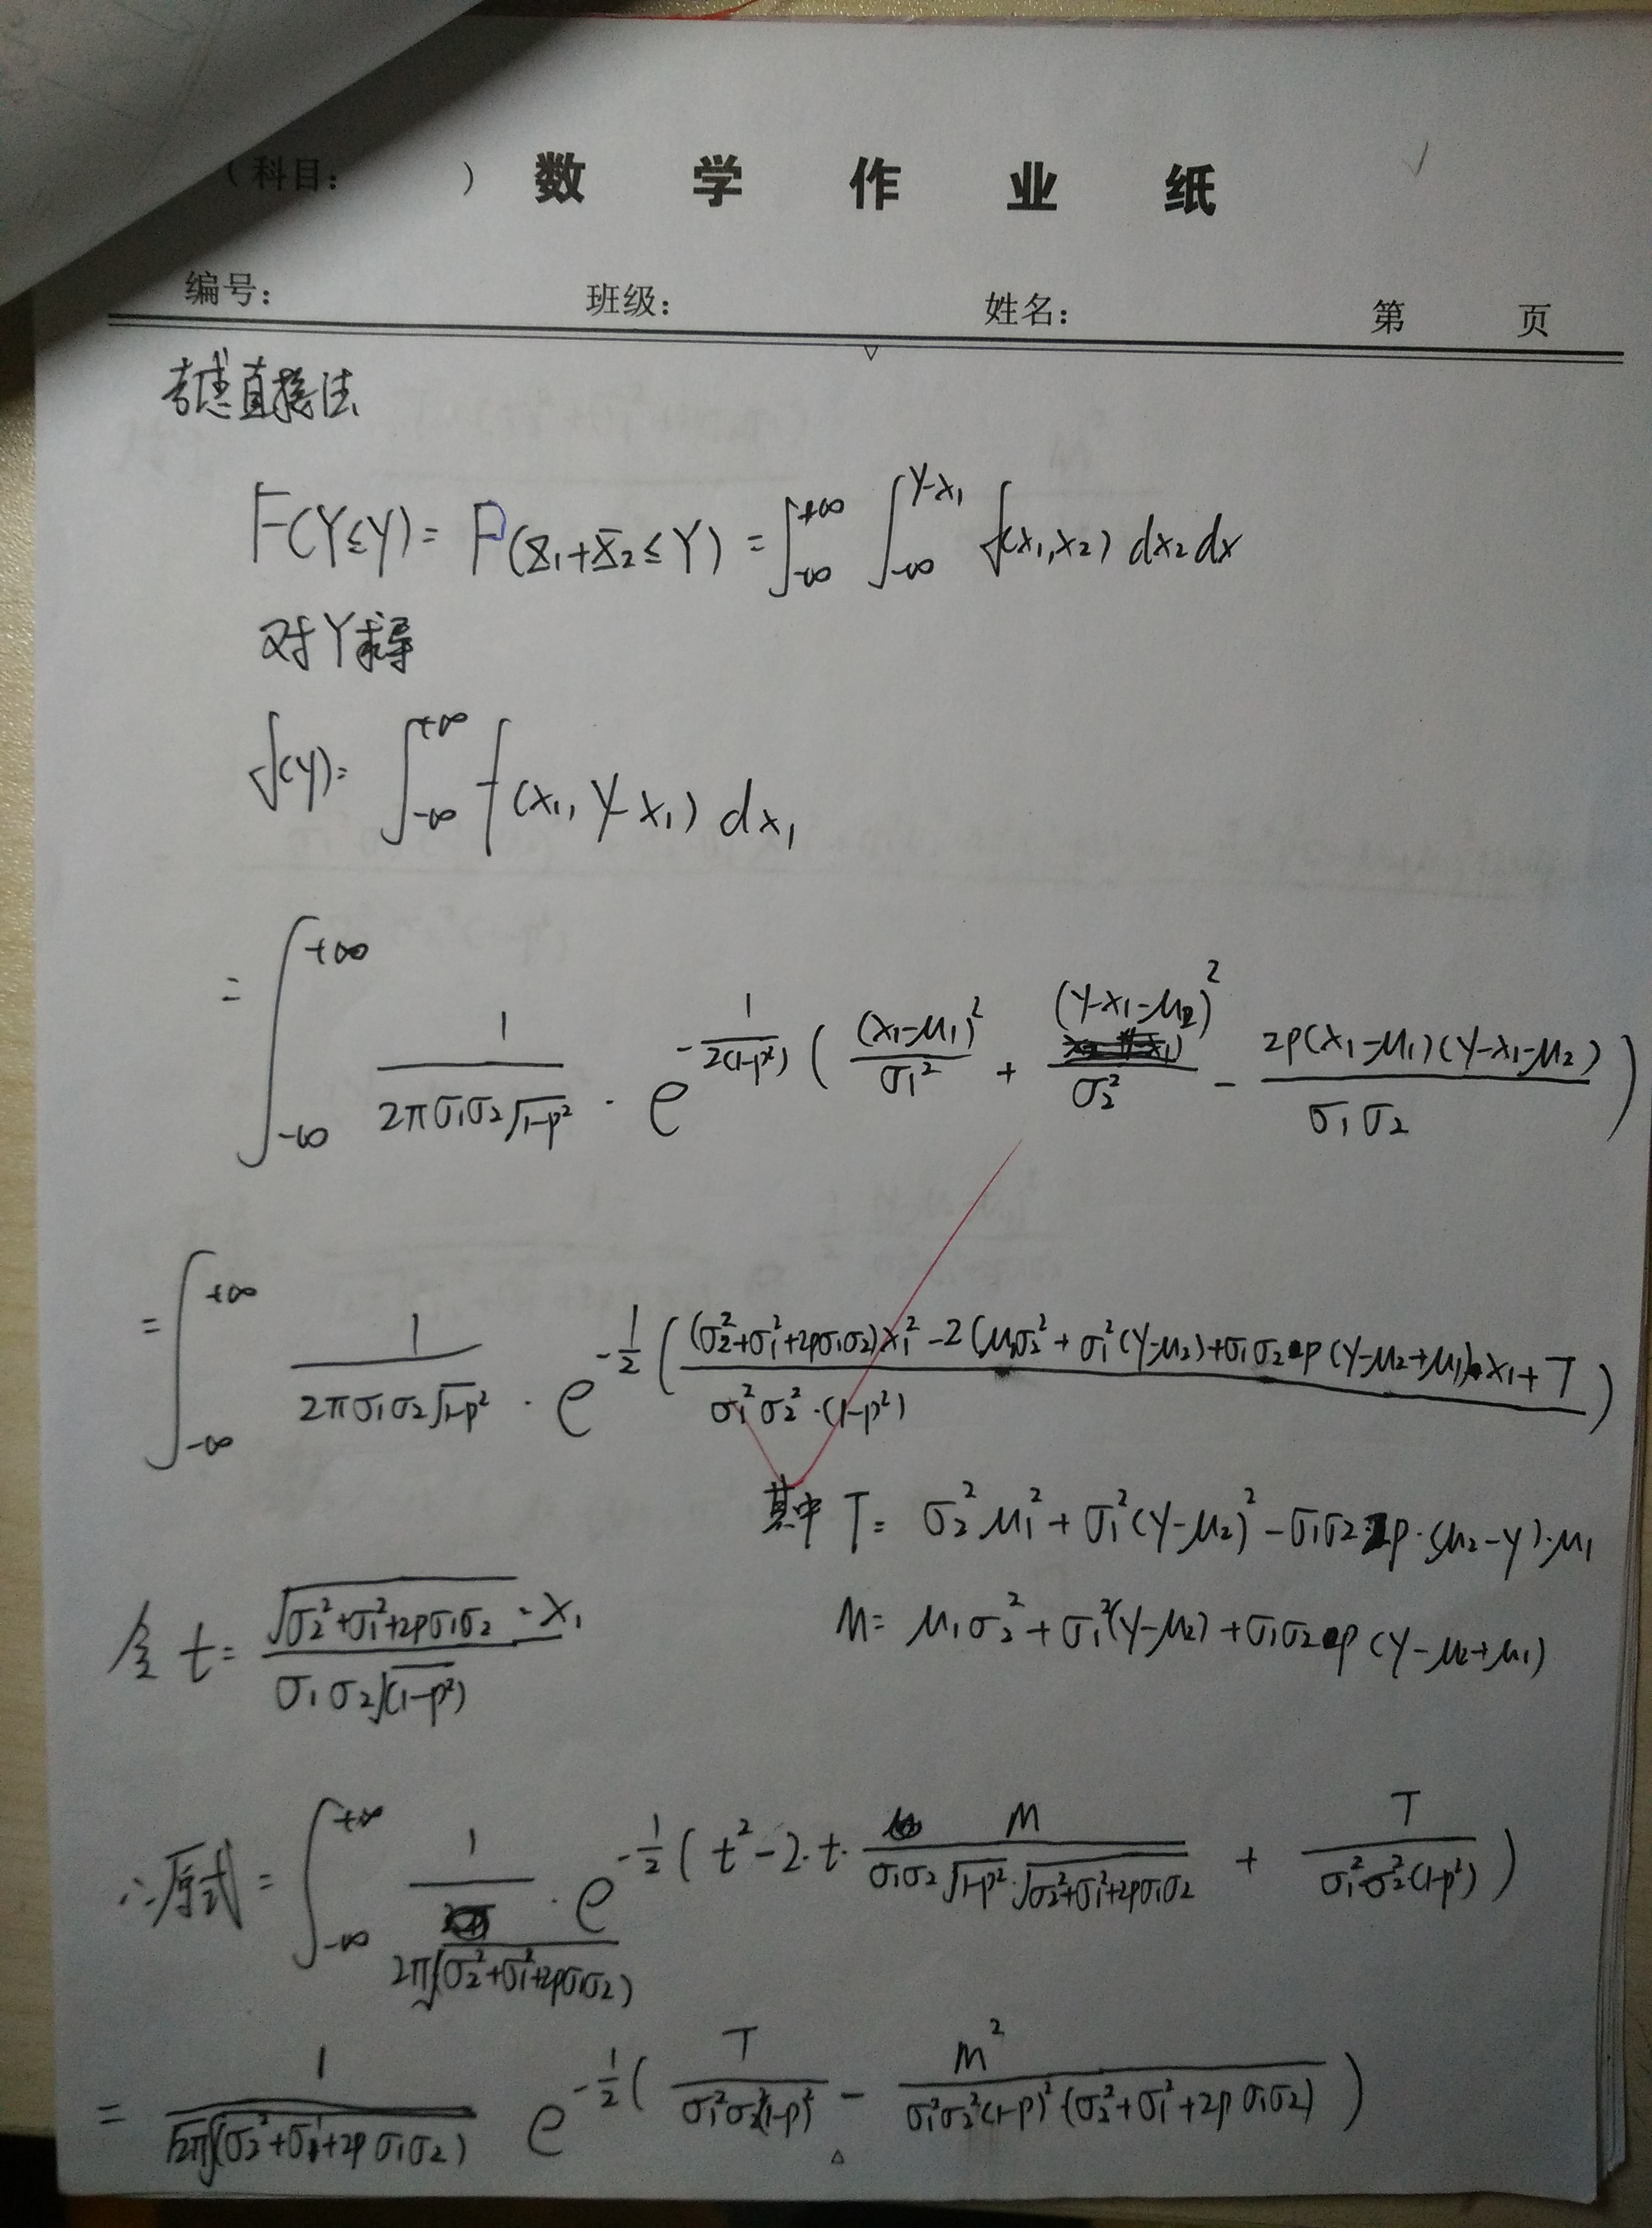 (科目: ) 数 学 作 业 纸
编号: 班级: 姓名: 第 页
考虑直接法
F(Y≤y) = P(X₁+X₂≤Y) = ∫_{-∞}^{+∞} ∫_{-∞}^{y-x₁} f(x₁,x₂) dx₂dx
对Y求导
f(y) = ∫_{-∞}^{+∞} f(x₁, y-x₁) dx₁
= ∫_{-∞}^{+∞} 1/(2πσ₁σ₂√(1-ρ²)) · e^{-1/(2(1-ρ²)) ((x₁-μ₁)²/σ₁² + (y-x₁-μ₂)²/σ₂² - 2ρ(x₁-μ₁)(y-x₁-μ₂)/(σ₁σ₂))}
= ∫_{-∞}^{+∞} 1/(2πσ₁σ₂√(1-ρ²)) · e^{-1/2 (((σ₂²+σ₁²+2ρσ₁σ₂)x₁² - 2(μ₁σ₂² + σ₁²(y-μ₂) + σ₁σ₂ρ(y-μ₂+μ₁))·x₁ + T)/(σ₁²σ₂²·(1-ρ²)))}
其中 T = σ₂²μ₁² + σ₁²(y-μ₂)² - σ₁σ₂·2ρ·(μ₂-y)·μ₁
令 t = √(σ₂²+σ₁²+2ρσ₁σ₂)·x₁/(σ₁σ₂√(1-ρ²)) M = μ₁σ₂² + σ₁²(y-μ₂) + σ₁σ₂ρ(y-μ₂+μ₁)
∴原式 = ∫_{-∞}^{+∞} 1/(2π√(σ₂²+σ₁²+2ρσ₁σ₂)) · e^{-1/2 (t² - 2·t·M/(σ₁σ₂√(1-ρ²)·√(σ₂²+σ₁²+2ρσ₁σ₂)) + T/(σ₁²σ₂²(1-ρ²)))}
= 1/(√2π√(σ₂²+σ₁²+2ρσ₁σ₂)) e^{-1/2 (T/(σ₁²σ₂²(1-ρ)²) - M²/(σ₁²σ₂²(1-ρ)²(σ₂²+σ₁²+2ρσ₁σ₂)))}